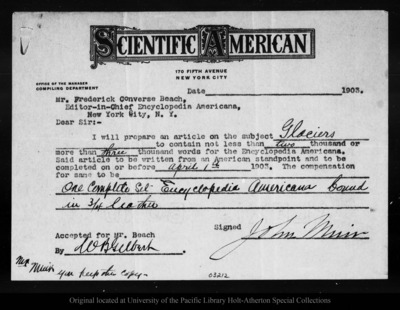 SCIENTIFIC AMERICAN
170 FIFTH AVENUE
NEW YORK CITY
OFFICE OF THE MANAGER
COMPILING DEPARTMENT
Date 1903.
Mr. Frederick Converse Beach,
Editor-in-Chief Encyclopedia Americana,
New York City, N. Y.
Dear Sir:-
I will prepare an article on the subject Glaciers
to contain not less than two thousand or
more than three thousand words for the Encyclopedia Americana.
Said article to be written from an American standpoint and to be
completed on or before April 1st 1903. The compensation
for same to be
One Complete Set Encyclopedia Americana bound
in 3/4 leather
Accepted for Mr. Beach
Signed John Muir
By W B Gilbert
Mr. Muir
you keep this copy-
03212
Original located at University of the Pacific Library Holt-Atherton Special Collections